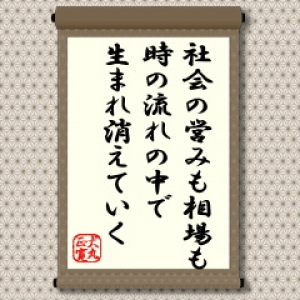 社会の営みも相場も
時の流れの中で
生まれ消えていく